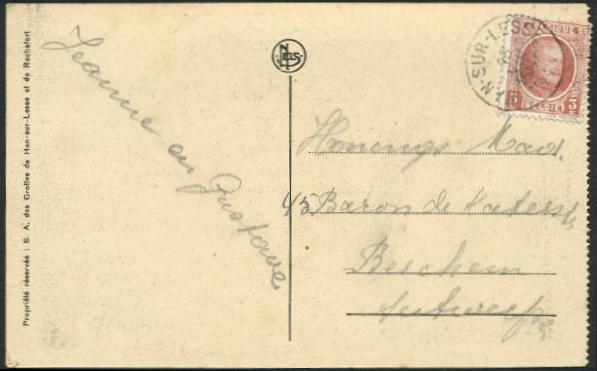 Propriété réservée : S. A. des Grottes de Han-sur-Lesse et de Rochefort.
Jeanne en Gustave
NELS
N-SUR-LESSE
BELGIQUE
5 BELGIË 5
45 Baron de
Berchem
Antwerp